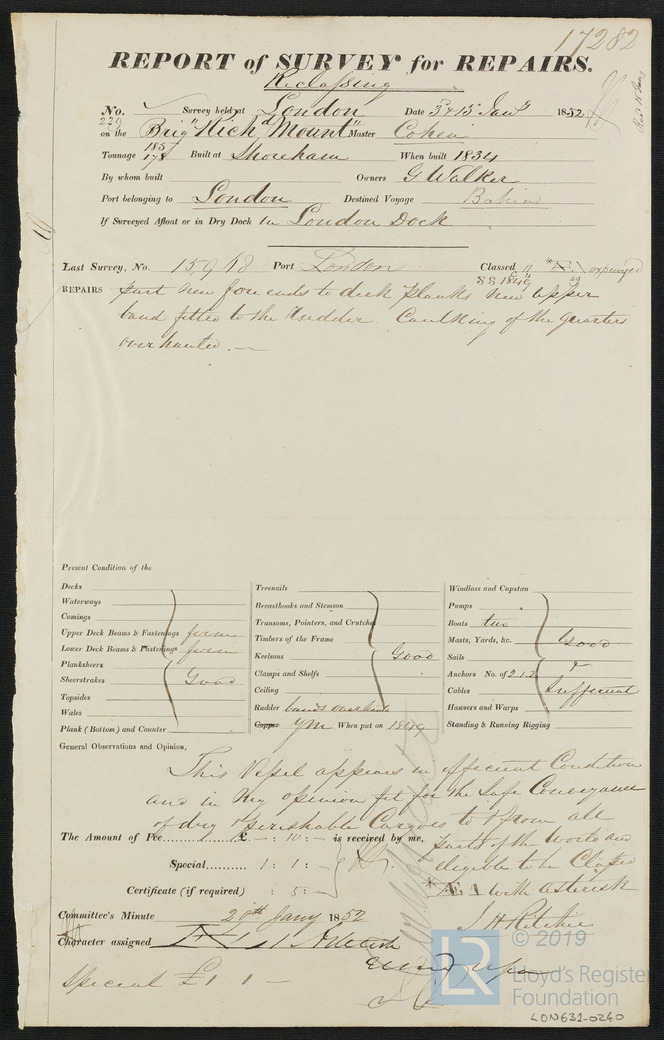 17282
REPORT of SURVEY for REPAIRS.
Reclassing
No. 229 Survey held at London Date 3 & 13 Jany 1852
on the Brig "Richd Mount" Master Cohen
Tonnage 185 178 Built at Shoreham When built 1834
By whom built Owners G Walker
Port belonging to London Destined Voyage Bahia
If Surveyed Afloat or in Dry Dock in London Dock
Last Survey, No. 15,968 Port London Classed *Æ. expunged
REPAIRS part new fore ends to deck planks New upper
band fitted to the Rudder. Caulking of the quarters
overhauled.
Present Condition of the
Decks
Waterways
Comings
Upper Deck Beams & Fastenings firm
Lower Deck Beams & Fastenings firm
Planksheers
Sheerstrakes Good
Topsides
Wales
Plank (Bottom) and Counter
Treenails
Breasthooks and Stemson
Transoms, Pointers, and Crutches
Timbers of the Frame
Keelsons Good
Clamps and Shelfs
Ceiling
Rudder bands
Copper YM When put on 1849
Windlass and Capstan
Pumps
Boats two
Masts, Yards, &c. Good
Sails &
Anchors No. of 2.1.2
Cables Sufficient
Hawsers and Warps
Standing & Running Rigging
General Observations and Opinion,
This Vessel appears in efficient Condition
and in my opinion fit for the Safe Conveyance
of dry & perishable Cargoes to & from all
parts of the World and
eligible to be Classed
*Æ A with asterisk
J H Ritchie
The Amount of Fee £ - : 10 : - is received by me,
Special 1 : 1 : -
Certificate (if required) : 5 : -
Committee's Minute 20th Jany 1852
Character assigned
Special £1 1 -
© 2019
LR
Lloyd's Register
Foundation
LON631-0240